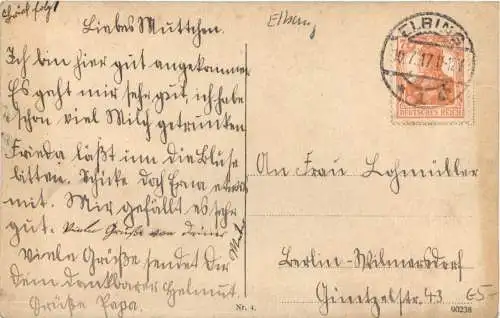 Zurück folgt
Liebes Muttchen.
Ich bin hier gut angekommen
Es geht mir sehr gut, ich habe
schon viel Milch getrunken
Frieda läßt um die Bluse
bitten. Schicke doch Erna etwas
mit. Mir gefällt es sehr
gut. Viele Grüße von Deiner
Viele Grüße sendet Dir
dein dankbarer Helmut.
Grüße Papa.
Elbing
ELBING
17 11-12
DEUTSCHES REICH
An Frau Lohmüller
Berlin-Wilmersdorf
Güntzelstr. 43
Nr. 4.
90238
E5-